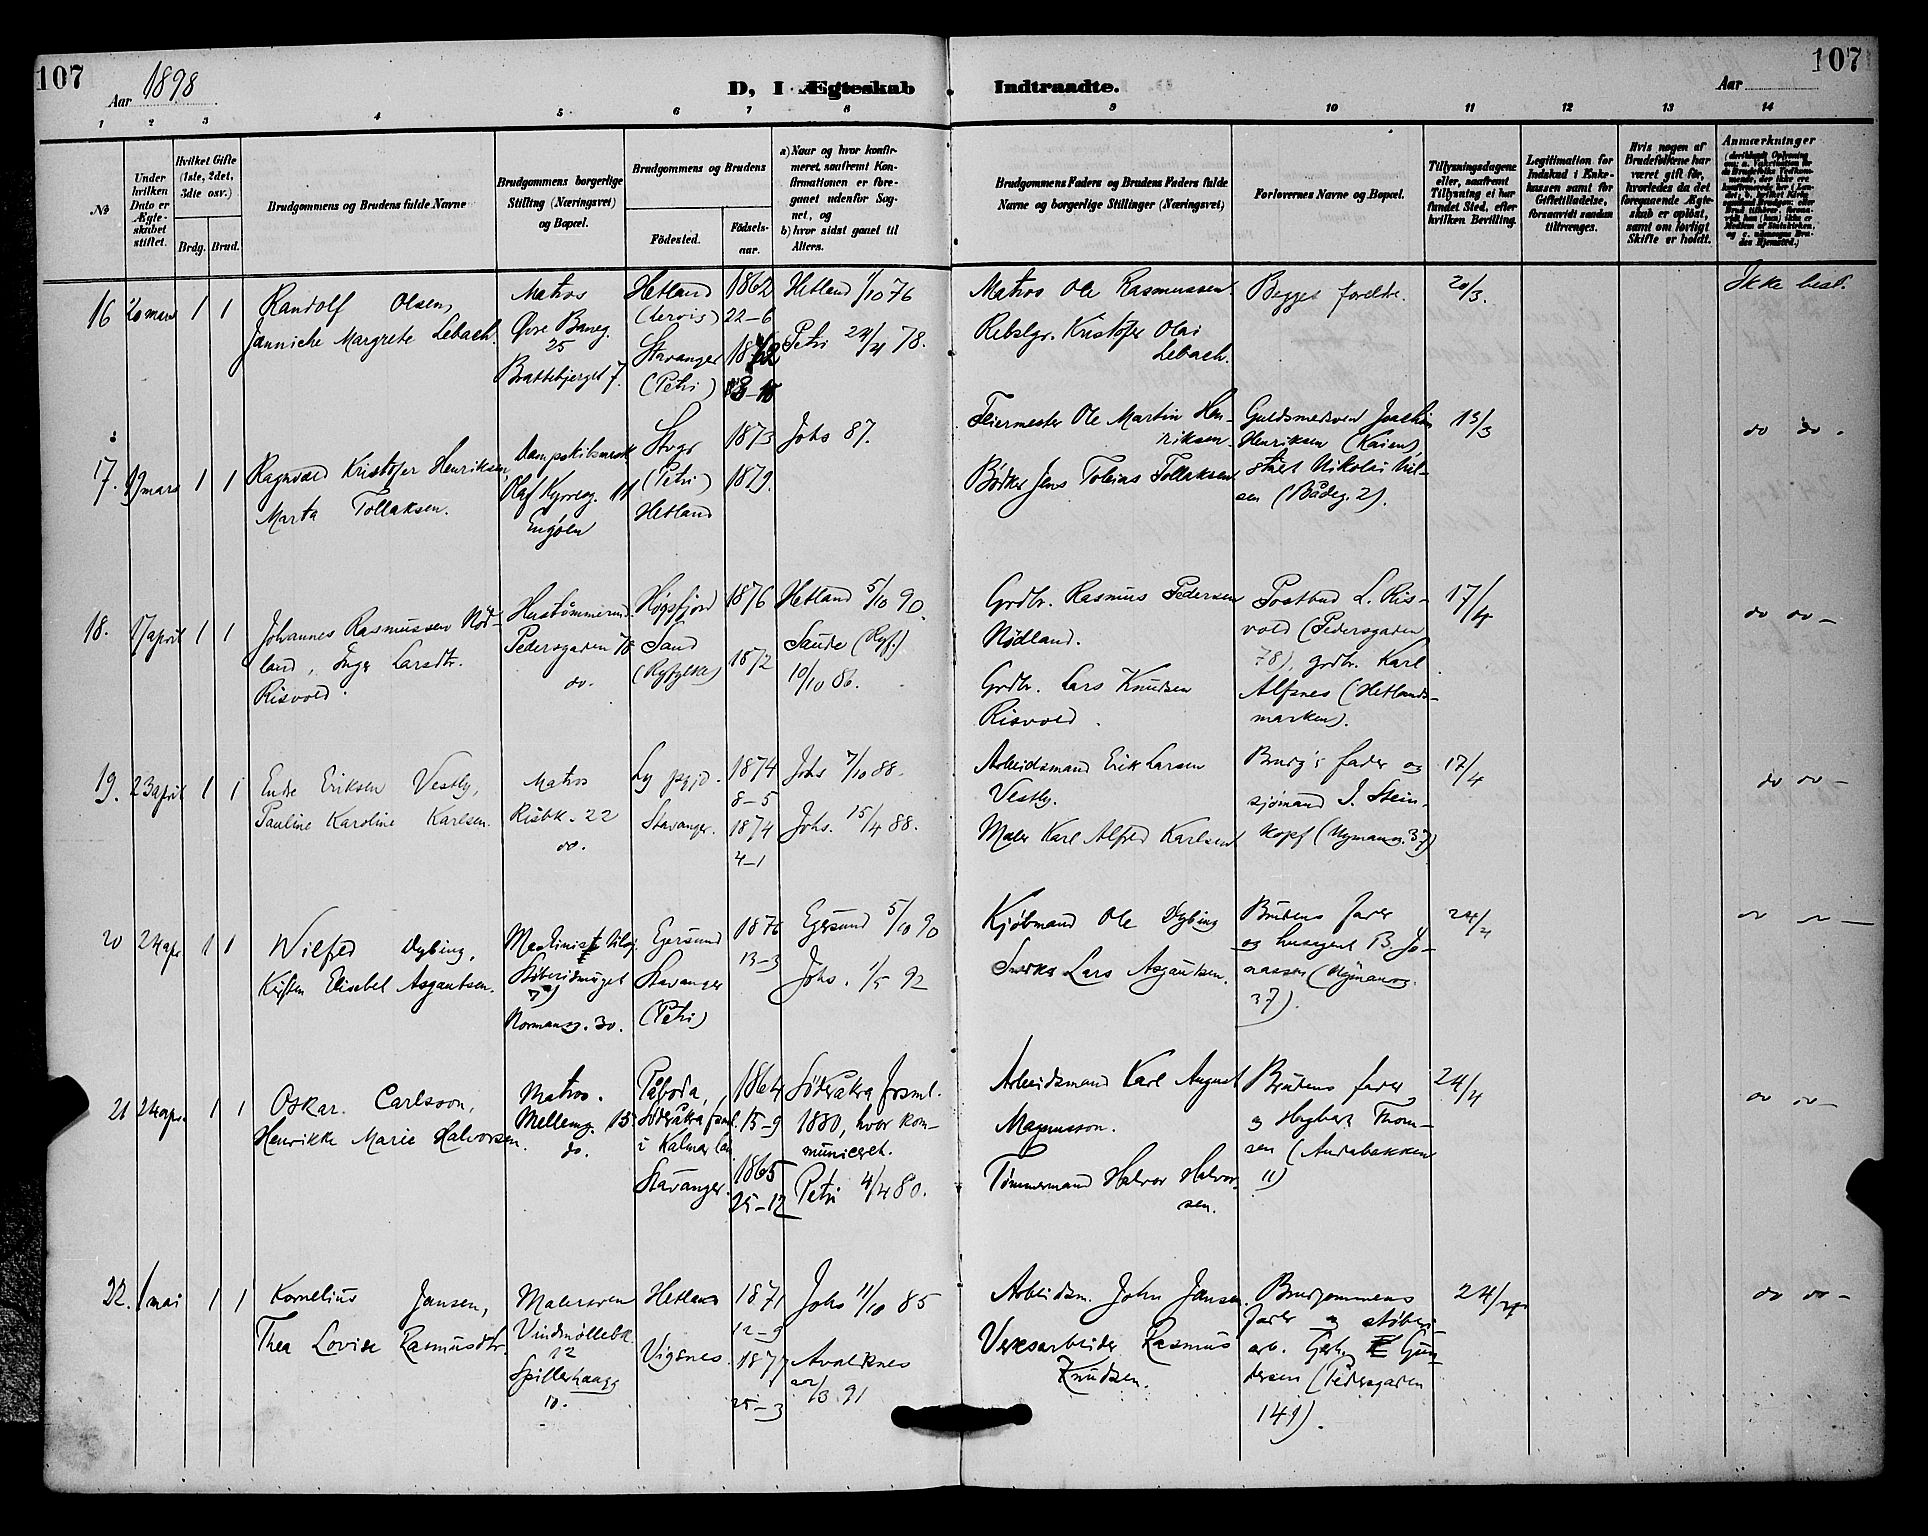 107
Aar 1898
D, I Ægteskab
Indtraadte.
Aar
107
1 2 3 4 5 6 7 8 9 10 11 12 13 14
№
Under hvilken Dato er Ægteskabet stiftet.
Hvilket Gifte (1ste, 2det, 3die osv.)
Brdg. Brud.
Brudgommens og Brudens fulde Navne
Brudgommens borgerlige Stilling (Næringsvei) og Bopæl.
Brudgommens og Brudens
Födested.
Födselsaar.
a) Naar og hvor konfirmeret, saafremt Konfirmationen er foregaaet udenfor Sognet, og
b) hvor sidst gaaet til Alters.
Brudgommens Faders og Brudens Faders fulde Navne og borgerlige Stillinger (Næringsvei)
Forlovernes Navne og Bopæl.
Tillysningsdagene eller, saafremt Tillysning ei har fundet Sted, efter hvilken Bevilling.
Legitimation for Indskud i Enkekassen samt for Giftetilladelse, forsaavidt saadan tiltrænges.
Hvis nogen af Brudefolkene har været gift för, hvorledes da det foregaaende Ægteskab er oplöst, samt om lovligt Skifte er holdt.
Anmærkninger
16 20 mars 1 1
Randolf Olsen,
Janniche Margrete Lebach.
Matros
Øvre Baneg.
25
Brattebjerget 7.
Hetland
Stavanger
(Petri)
1862
22-6
Hetland 1/10 76
Petri 24/4 78.
Matros Ole Rasmussen.
Rebslgr. Kristofer Olai
Lebach.
Begges forældre.
20/3.
Ikke besl.
17. mars 1 1
Ragnvald Kristofer Henriksen
Marta Tollaksen.
Olaf Kyrreg. 11
Engøen
Stvgr
(Petri)
Hetland
1873
1879.
Johs 87.
Feiermester Ole Martin Hen-
riksen.
Bødker Jens Tobias Tollaksen
Guldsmedsvend Joachim
Henriksen (Kaien),
Nikolai Nil-
sen (Bådeg. 2).
13/3
do do.
18. 17 april 1 1
Johannes Rasmussen Nød-
land, Inger Larsdtr.
Risvold.
Hustømmermd
Pedersgaden 78
do.
Høgsfjord
Sand
(Ryfylke)
1876
1872
Hetland 5/10 90
Saude (Ryf.)
10/10 86.
Grdbr. Rasmus Pedersen
Nødland.
Grdbr. Lars Knudsen
Risvold.
Postbud L. Ris-
vold (Pedersgaden
78), grdbr. Karl
Alfsnes (Hetlands-
marken).
17/4
do do -
19. 23 april 1 1
Endre Eriksen Vestly,
Pauline Karoline Karlsen.
Matros
Risbk. 22
do.
Stavanger.
1874
8-5
1874
4-1
Johs 7/10 88.
Johs. 15/4 88.
Arbeidsmand Erik Larsen
Vestly.
Maler Karl Alfred Karlsen
Brudg's fader og
sjömand J. Stein-
kopf (Nymansg. 37)
17/4
do do -
20 24 apr 1 1
Wilfred Dybing,
Kirsten Elisabet Asgautsen.
Maskinist
Normansg. 30.
Egersund
Stavanger
(Petri)
1876
13-3
Egersund 5/10 90
Johs. 1/5 92
Kjøbmand Ole Dybing
Snekr Lars Asgautsen.
Brudens fader
og husagent B. Jo-
nassen (Nymansg.
37).
24/4
do do -
21 24 apr. 1 1
Oskar Carlsson,
Henrikke Marie Halvorsen.
Matros.
Mellemg. 15.
do.
Påboda,
Söderåkra fsml.
i Kalmar län
Stavanger.
1864
15-9
1865
25-12
Söderåkra forsml.
1880, hvor kom-
municeret.
Petri 4/4 80.
Arbeidsmand Karl August
Magnusson.
Tømmermand Halvor Halvor-
sen.
Brudens fader
og Thom-
sen (Andabakken
11)
24/4
do do -
22. 1 mai 1 1
Kornelius Jansen,
Thea Lovise Rasmusdtr.
Malersven
Vindmøllebk.
12
Spilderhaugg
10.
Hetland
Vigsnes.
1871
12-9
1877
25-3
Johs 11/10 85
Avaldsnes
22/3 91
Arbeidsm. John Jansen.
Verksarbeider Rasmus
Knudsen.
Brudgommens
fader og støberi-
arb. Gerh. Gun-
dersen (Pedersgaden
141).
24/4
do do -